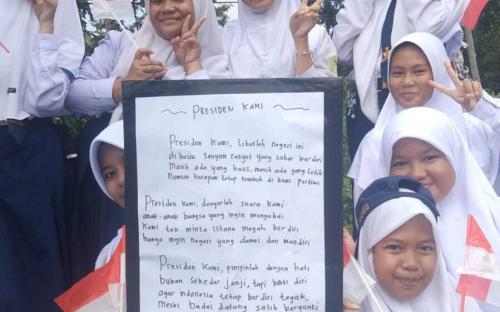 PRESIDEN KAMI
Presiden Kami, Lihatlah negeri ini
di balik Senyum rakyat yang sabar berdiri
Masih ada yang haus, masih ada yang letih
Namun harapan tetap tumbuh di bumi pertiwi
Presiden Kami, dengarlah suara Kami
anak-anak bangsa yang ingin mengabdi
Kami tak minta istana megah berdiri
hanya ingin negeri yang damai dan mandiri
Presiden Kami, pimpinlah dengan hati
bukan sekedar janji, tapi bukti diri
agar indonesia tetap berdiri tegak,
Meski badai datang silih berganti